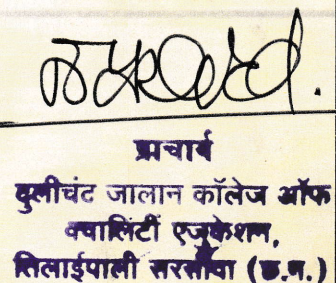 प्राचार्य
दुलीचंद जालान कॉलेज ऑफ
क्वालिटी एजुकेशन,
तिलाईपाली सरसींवा (छ.ग.)